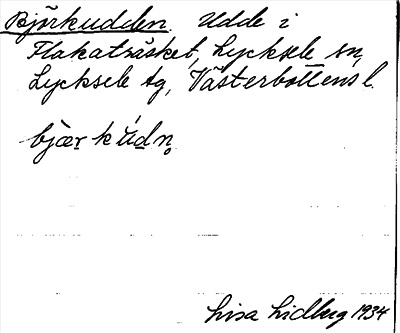 Björkudden. Udde i
Flakaträsket, Lycksele sn,
Lycksele tg, Västerbottens l.
bjær kùdn̥
Lisa Lidberg 1934